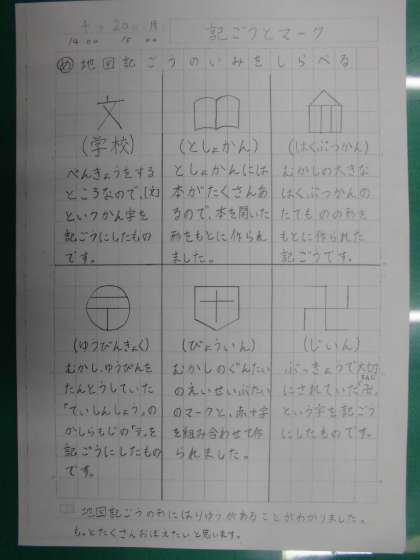 4 20 月
14 00 15 00
記ごうとマーク
め 地図記ごうのいみをしらべる
文
(学校)
べんきょうをする
ところなので、「文」
というかん字を
記ごうにしたもの
です。
(としょかん)
としょかんには
本がたくさんあ
るので、本を開いた
形をもとに作られ
ました。
(はくぶつかん)
むかしの大きな
はくぶつかんの
たてものの形を
もとに作られた
記ごうです。
(ゆうびんきょく)
むかし、ゆうびんを
たんとうしていた
「ていしんしょう」の
かしらもじの「テ」を
記ごうにしたもの
です。
(びょういん)
むかしのぐんたい
のえいせいぶたい
のマークと、赤十字
を組み合わせて作
られました。
(じいん)
ぶっきょうで大切
にされていた「卍」
まんじ
という字を記ごう
にしたものです。
地図記ごうの形にはりゆうがあることがわかりました。
もっとたくさんおぼえたいと思います。